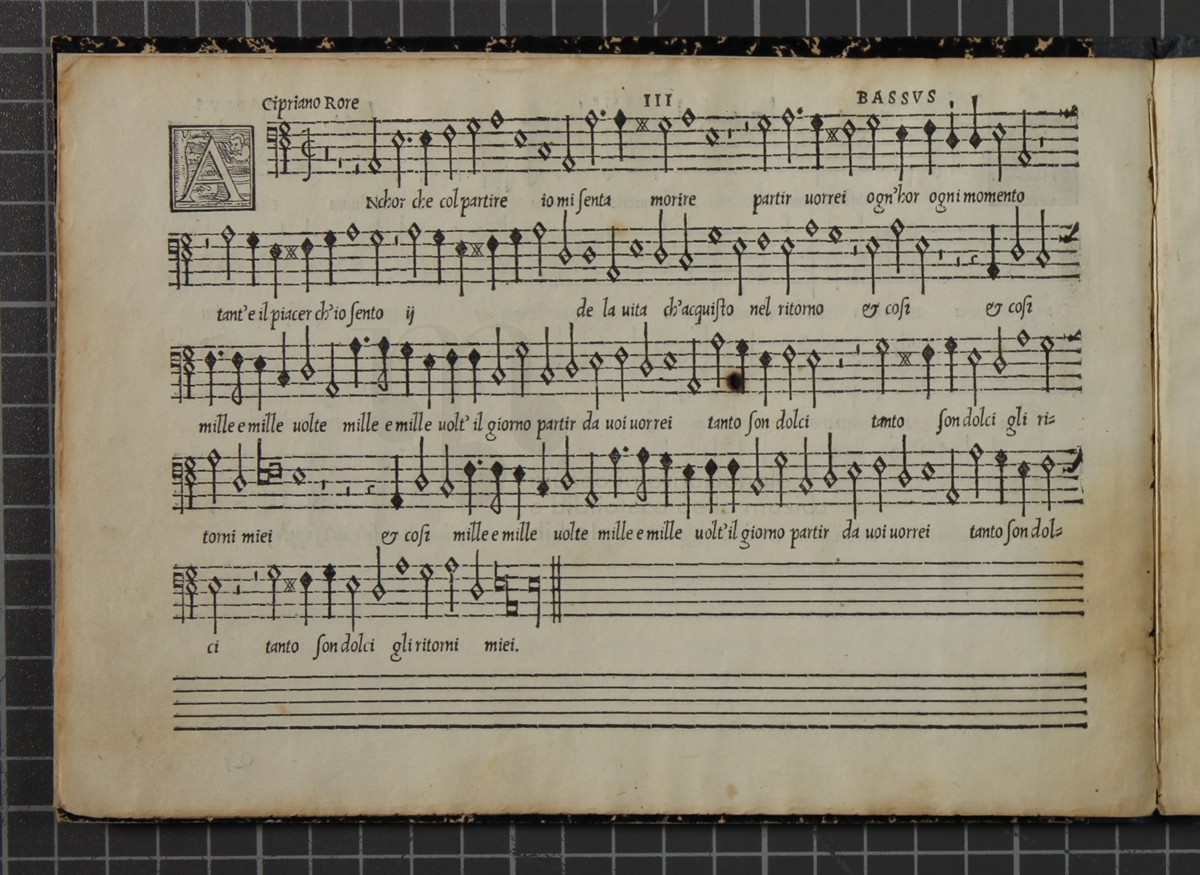 Cipriano Rore III BASSVS
ANchor che col partire io mi ſenta morire partir uorrei ogn'hor ogni momento
tant'e il piacer ch'io ſento ij de la uita ch'acquiſto nel ritorno & coſi & coſi
mille e mille uolte mille e mille uolt' il giorno partir da uoi uorrei tanto ſon dolci tanto ſon dolci gli ri=
torni miei & coſi mille e mille uolte mille e mille uolt'il giorno partir da uoi uorrei tanto ſon dol=
ci tanto ſon dolci gli ritorni miei.